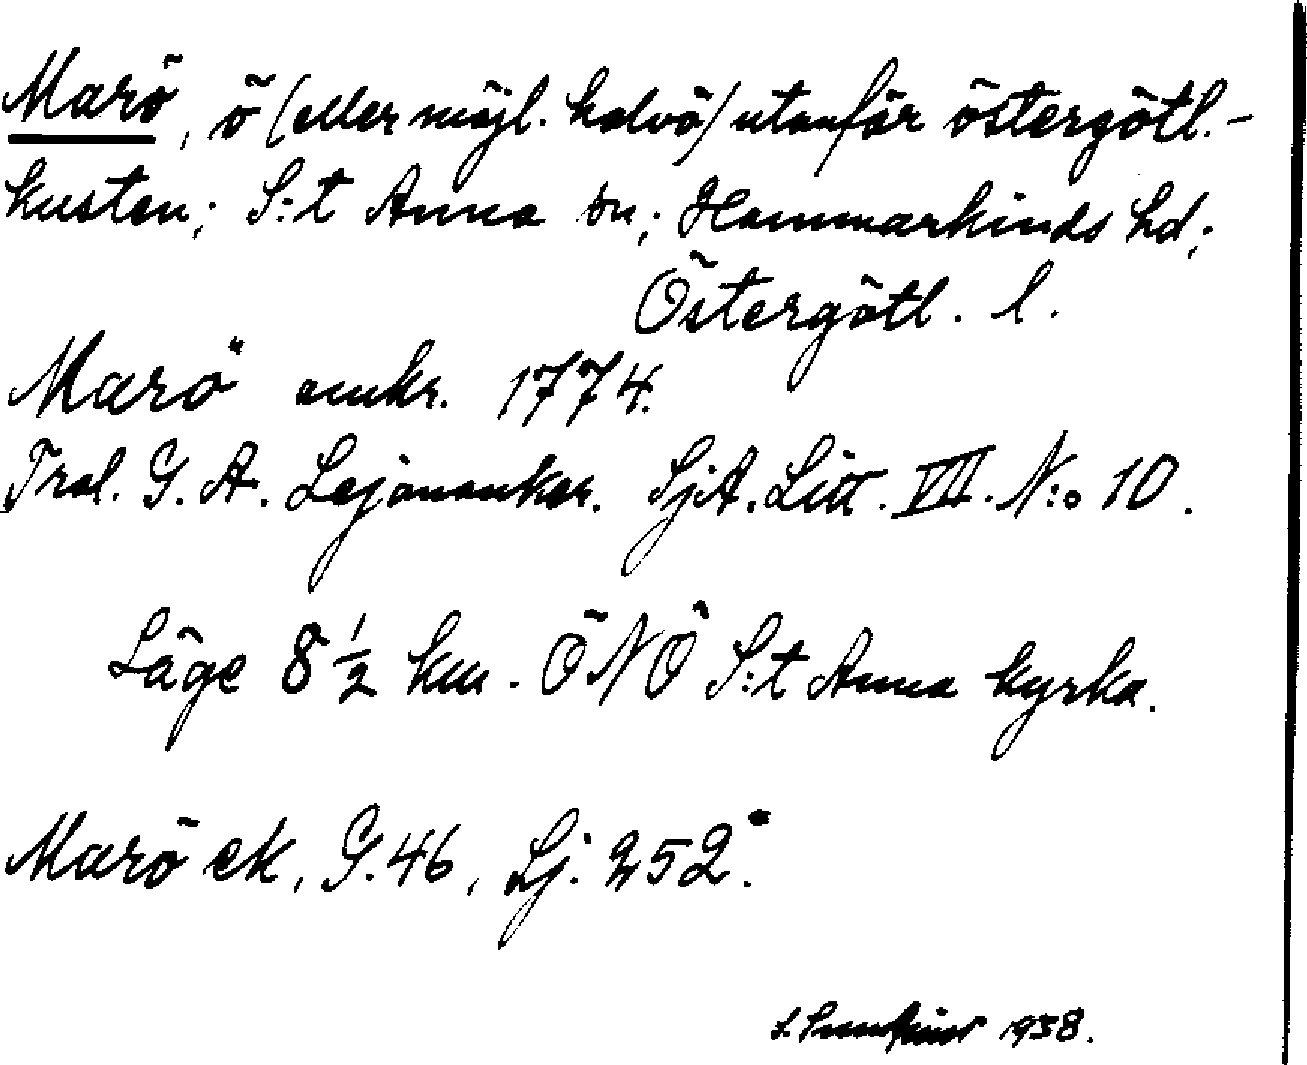 Marö, ö (eller möjl. halvö) utanför östergötl.-
kusten; S:t Anna sn; Hammarkinds hd;
Östergötl. l.
Marö omkr. 1774.
Tral. G. A. Lejonanker. SjA. Litt. VII. N:o 10.
Läge 8 1/2 km. ÖNÖ S:t Anna kyrka.
Marö ek, G. 46, Lj. 252.
1938.